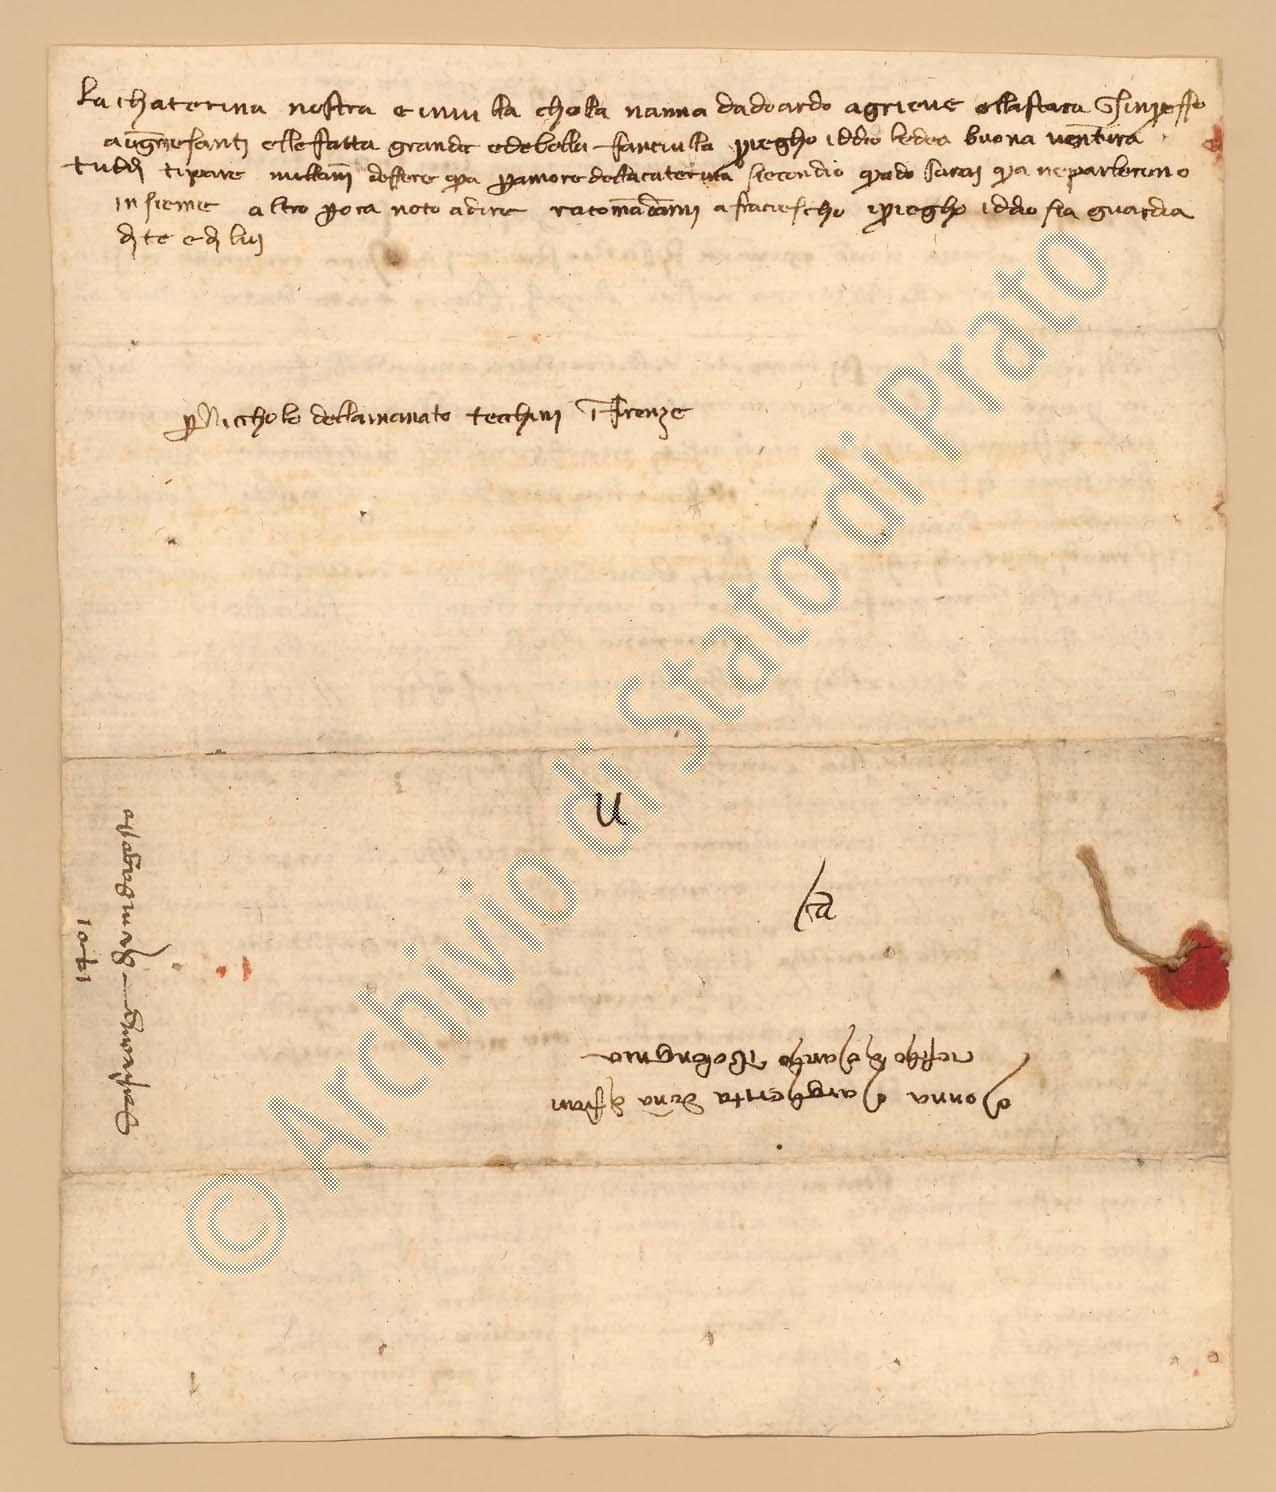 La chaterina nostra e in villa chola nanna dadoardo a grieve e llastara Ĝ in presso
a ungniesanti ell e fatta grande ed e bella fanciulla priegho iddio le dea buona ventura
ti pare mill anni dessere qua p amore della caterina se condio quado sarai qua ne parlereno
insieme altro p ora no to a dire racomadami a franciescho i priegho iddio sia guardia
di te e di lui
p Nicchole dellamanato tecchini Firenze
Monna Margherita dona di fran
ciescho di Marcho Bologna
1401
© Archivio di Stato di Prato